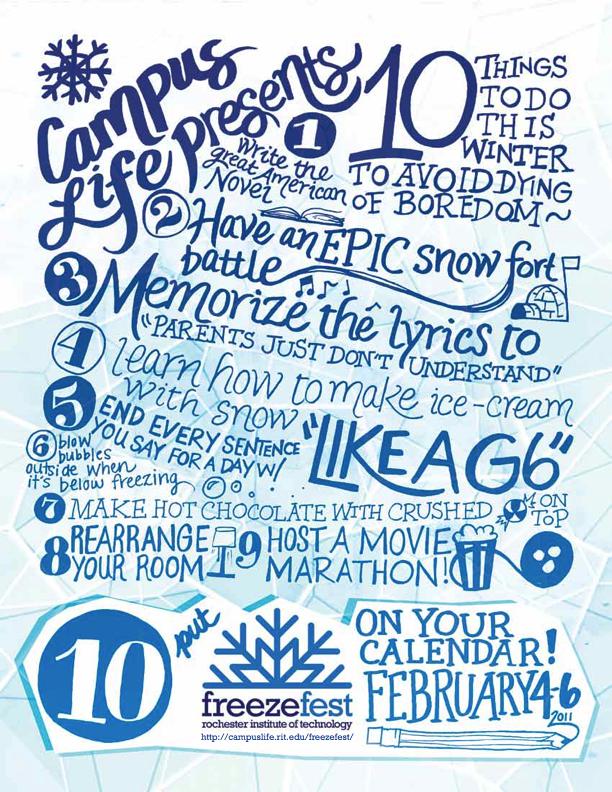 Campus
Life presents
10
THINGS
TO DO
THIS
WINTER
TO AVOID DYING
OF BOREDOM~
1
Write the
great American
Novel
2
Have an EPIC snow fort
battle
3
Memorize the lyrics to
"PARENTS JUST DON'T UNDERSTAND"
4
learn how to make ice-cream
with snow
5
END EVERY SENTENCE
YOU SAY FOR A DAY W/
"LIKE A G6"
6
blow
bubbles
outside when
it's below freezing
7 MAKE HOT CHOCOLATE WITH CRUSHED
ON
TOP
8 REARRANGE
YOUR ROOM
9 HOST A MOVIE
MARATHON!
10
put
freezefest
rochester institute of technology
http://campuslife.rit.edu/freezefest/
ON YOUR
CALENDAR!
FEBRUARY 4-6
2011